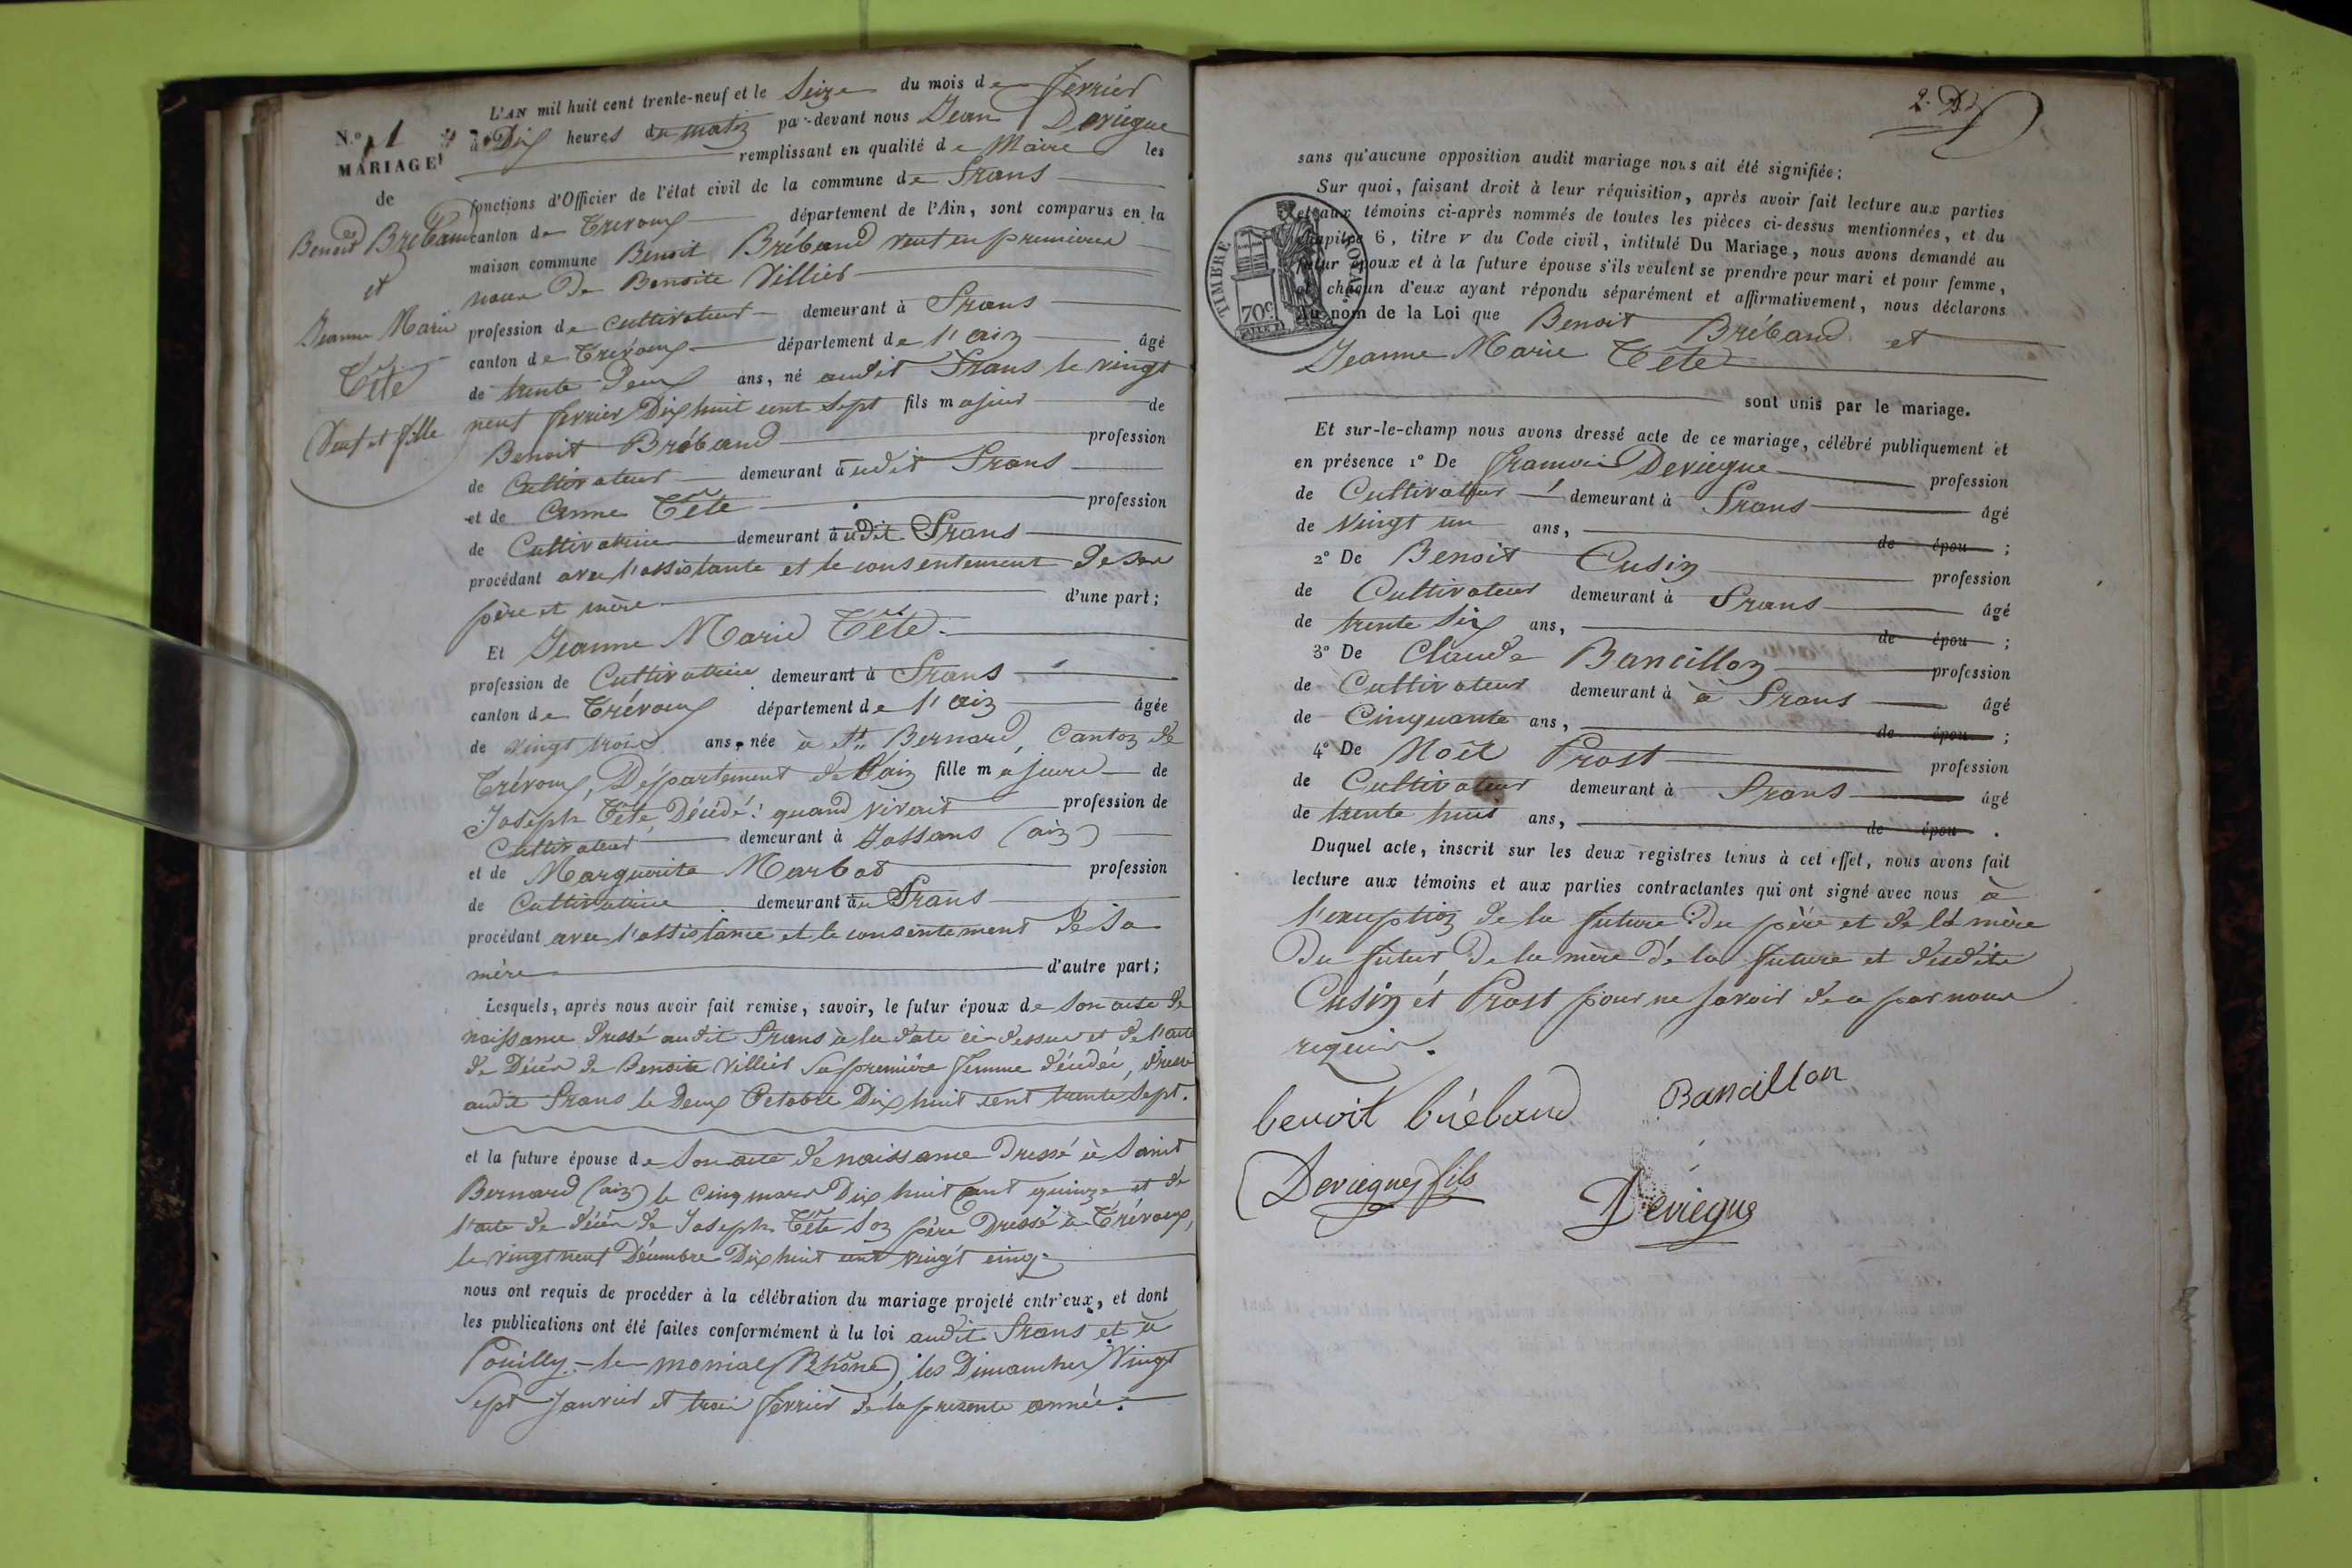 N.o 1
MARIAGE
de
Benoit Breband
et
Jeanne Marie
Tête
Veuf et fille
L'AN mil huit cent trente-neuf et le Seize du mois de fevrier
à Dix heures du matin par-devant nous Jean Deviegue
remplissant en qualité de Maire les
fonctions d'Officier de l'état civil de la commune de Frans
canton de Trevoux département de l'Ain, sont comparus en la
maison commune Benoit Bréband veuf en premieres
noces de Benoite Villier
profession de cultivateur demeurant à Frans
canton de Trevoux département de l'ain âgé
de trente Deux ans, né audit Frans le vingt
neuf fevrier Dix huit cent Sept fils majeur de
Benoit Bréband profession
de Cultivateur demeurant audit Frans
et de Anne Tête profession
de Cultivatrice demeurant audit Frans
procédant avec l'assistante et le consentement de ses
père et mère d'une part;
Et Jeanne Marie Tête
profession de Cultivatrice demeurant à Frans
canton de Trévoux département de l'ain âgée
de vingt trois ans, née à St. Bernard, Canton de
Trévoux, Département de l'ain fille majeure de
Joseph Tête, Décédé: quand vivait profession de
Cultivateur demeurant à Jassans (ain)
et de Marguerite Marbot profession
de Cultivatrice demeurant au Frans
procédant avec l'assistance et le consentement de sa
mère d'autre part;
Lesquels, après nous avoir fait remise, savoir, le futur époux de Son acte de
naissance dressé audit Frans à la date ci-dessus et de l'acte
de Décès de Benoite Villier Sa première femme décédée, dressé
audit Frans le Deux Octobre Dix huit cent trente Sept.
et la future épouse de Son acte de naissance Dressé à Saint
Bernard (ain) le Cinq mars Dix huit cent quinze et de
l'acte de décès de Joseph Tête Son père Dressé à Trévoux,
le vingt neuf Décembre Dix huit cent vingt cinq.
nous ont requis de procéder à la célébration du mariage projeté entr'eux, et dont
les publications ont été faites conformément à la loi audit Frans et à
Pouilly-le-monial (Rhône), les Dimanches Vingt
Sept Janvier et trois fevrier de la presente année.
2. D
sans qu'aucune opposition audit mariage nous ait été signifiée;
Sur quoi, faisant droit à leur réquisition, après avoir fait lecture aux parties
et aux témoins ci-après nommés de toutes les pièces ci-dessus mentionnées, et du
chapitre 6, titre v du Code civil, intitulé Du Mariage, nous avons demandé au
futur époux et à la future épouse s'ils veulent se prendre pour mari et pour femme,
et chacun d'eux ayant répondu séparément et affirmativement, nous déclarons
au nom de la Loi que Benoit Bréband et
Jeanne Marie Tête
sont unis par le mariage.
TIMBRE ROYAL
70c
Et sur-le-champ nous avons dressé acte de ce mariage, célébré publiquement et
en présence 1° De francois Deviegue profession
de Cultivateur demeurant à Frans âgé
de Vingt un ans, de épou ;
2° De Benoit Cusin profession
de Cultivateur demeurant à Frans âgé
de trente Six ans, de épou ;
3° De Claude Bancillon profession
de Cultivateur demeurant à à Frans âgé
de Cinquante ans, de épou ;
4° De Noël Prost profession
de Cultivateur demeurant à Frans âgé
de trente huit ans, de épou .
Duquel acte, inscrit sur les deux registres tenus à cet effet, nous avons fait
lecture aux témoins et aux parties contractantes qui ont signé avec nous à
l'exception de la future Du père et de la mère
Du futur De la mère de la future et desdits
Cusin et Prost pour ne savoir de ce par nous
requis.
benoit bréband
Bancillon
Deviegue fils
Deviegue